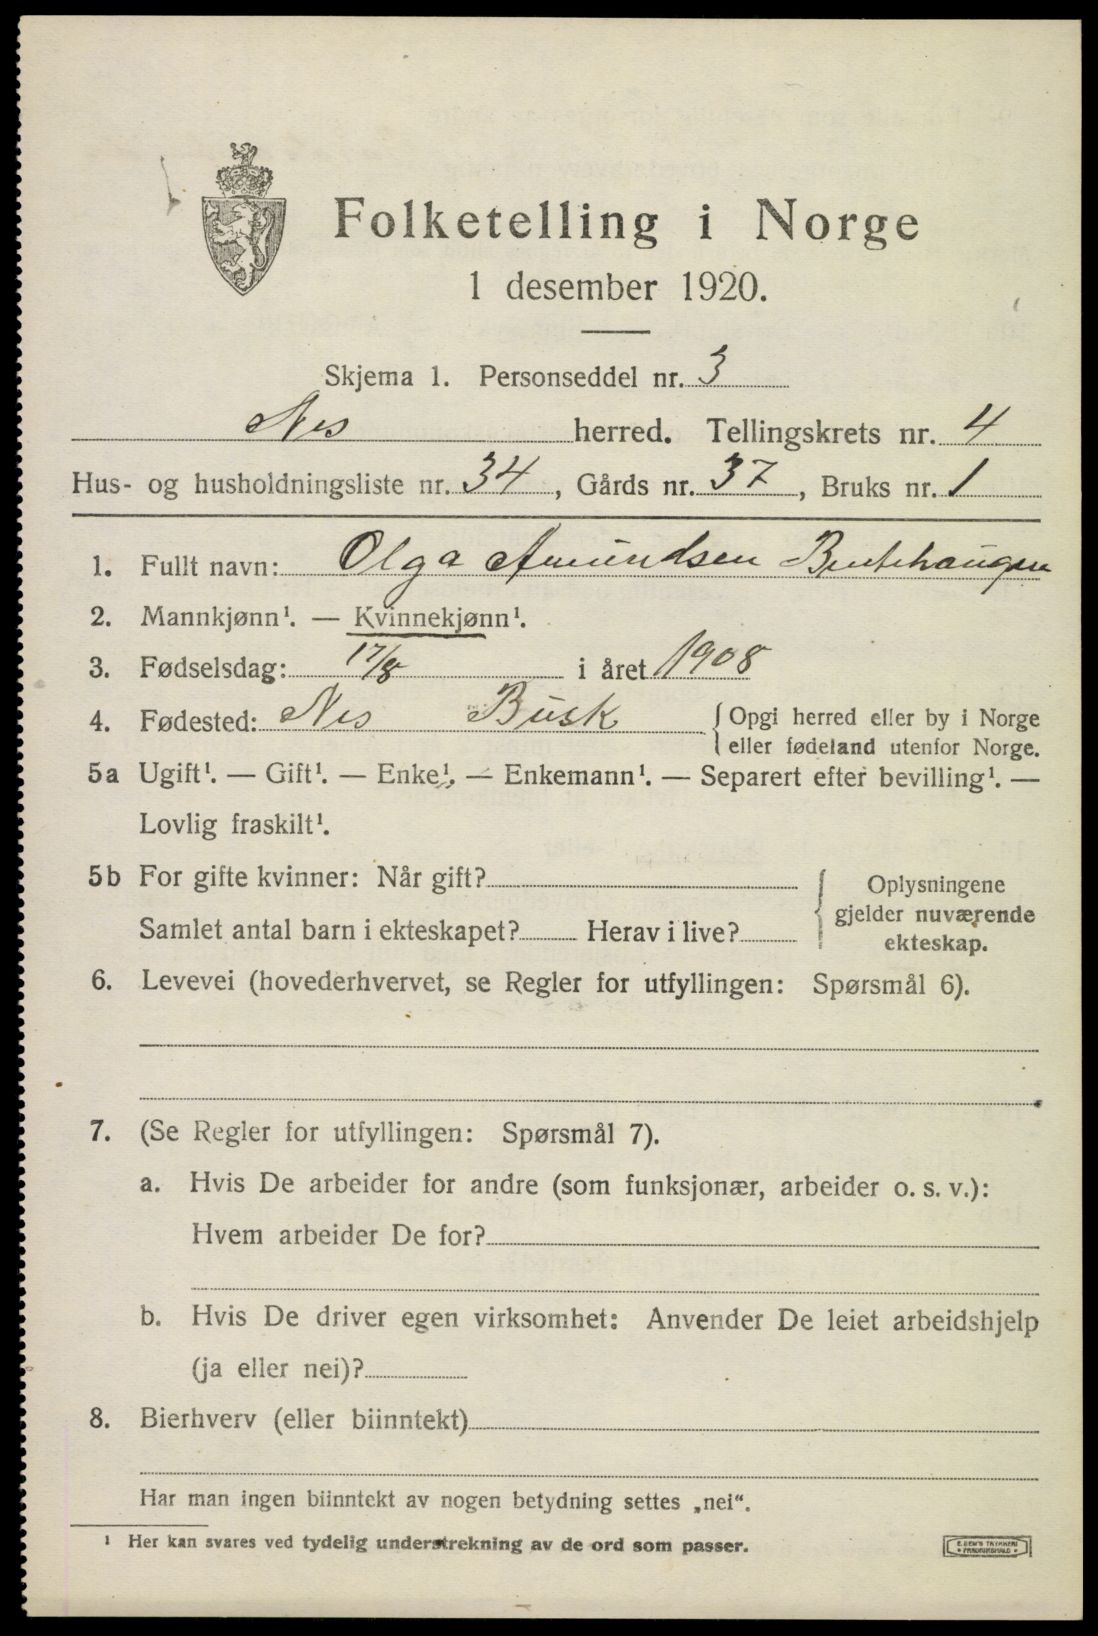 Folketelling i Norge
1 desember 1920.
Skjema 1. Personseddel nr. 3
Nes herred. Tellingskrets nr. 4
Hus- og husholdningsliste nr. 34, Gårds nr. 37, Bruks nr. 1
1. Fullt navn: Olga Amundsen
2. Mannkjønn¹. — Kvinnekjønn¹.
3. Fødselsdag: 17/8 i året 1908
4. Fødested: Nes Busk { Opgi herred eller by i Norge
eller fødeland utenfor Norge.
5a Ugift¹. — Gift¹. — Enke¹. — Enkemann¹. — Separert efter bevilling¹. —
Lovlig fraskilt¹.
5b For gifte kvinner: Når gift?
Samlet antal barn i ekteskapet? Herav i live?
{ Oplysningene
gjelder nuværende
ekteskap.
6. Levevei (hovederhvervet, se Regler for utfyllingen: Spørsmål 6).
7. (Se Regler for utfyllingen: Spørsmål 7).
a. Hvis De arbeider for andre (som funksjonær, arbeider o. s. v.):
Hvem arbeider De for?
b. Hvis De driver egen virksomhet: Anvender De leiet arbeidshjelp
(ja eller nei)?
8. Bierhverv (eller biinntekt)
Har man ingen biinntekt av nogen betydning settes „nei".
¹ Her kan svares ved tydelig understrekning av de ord som passer.